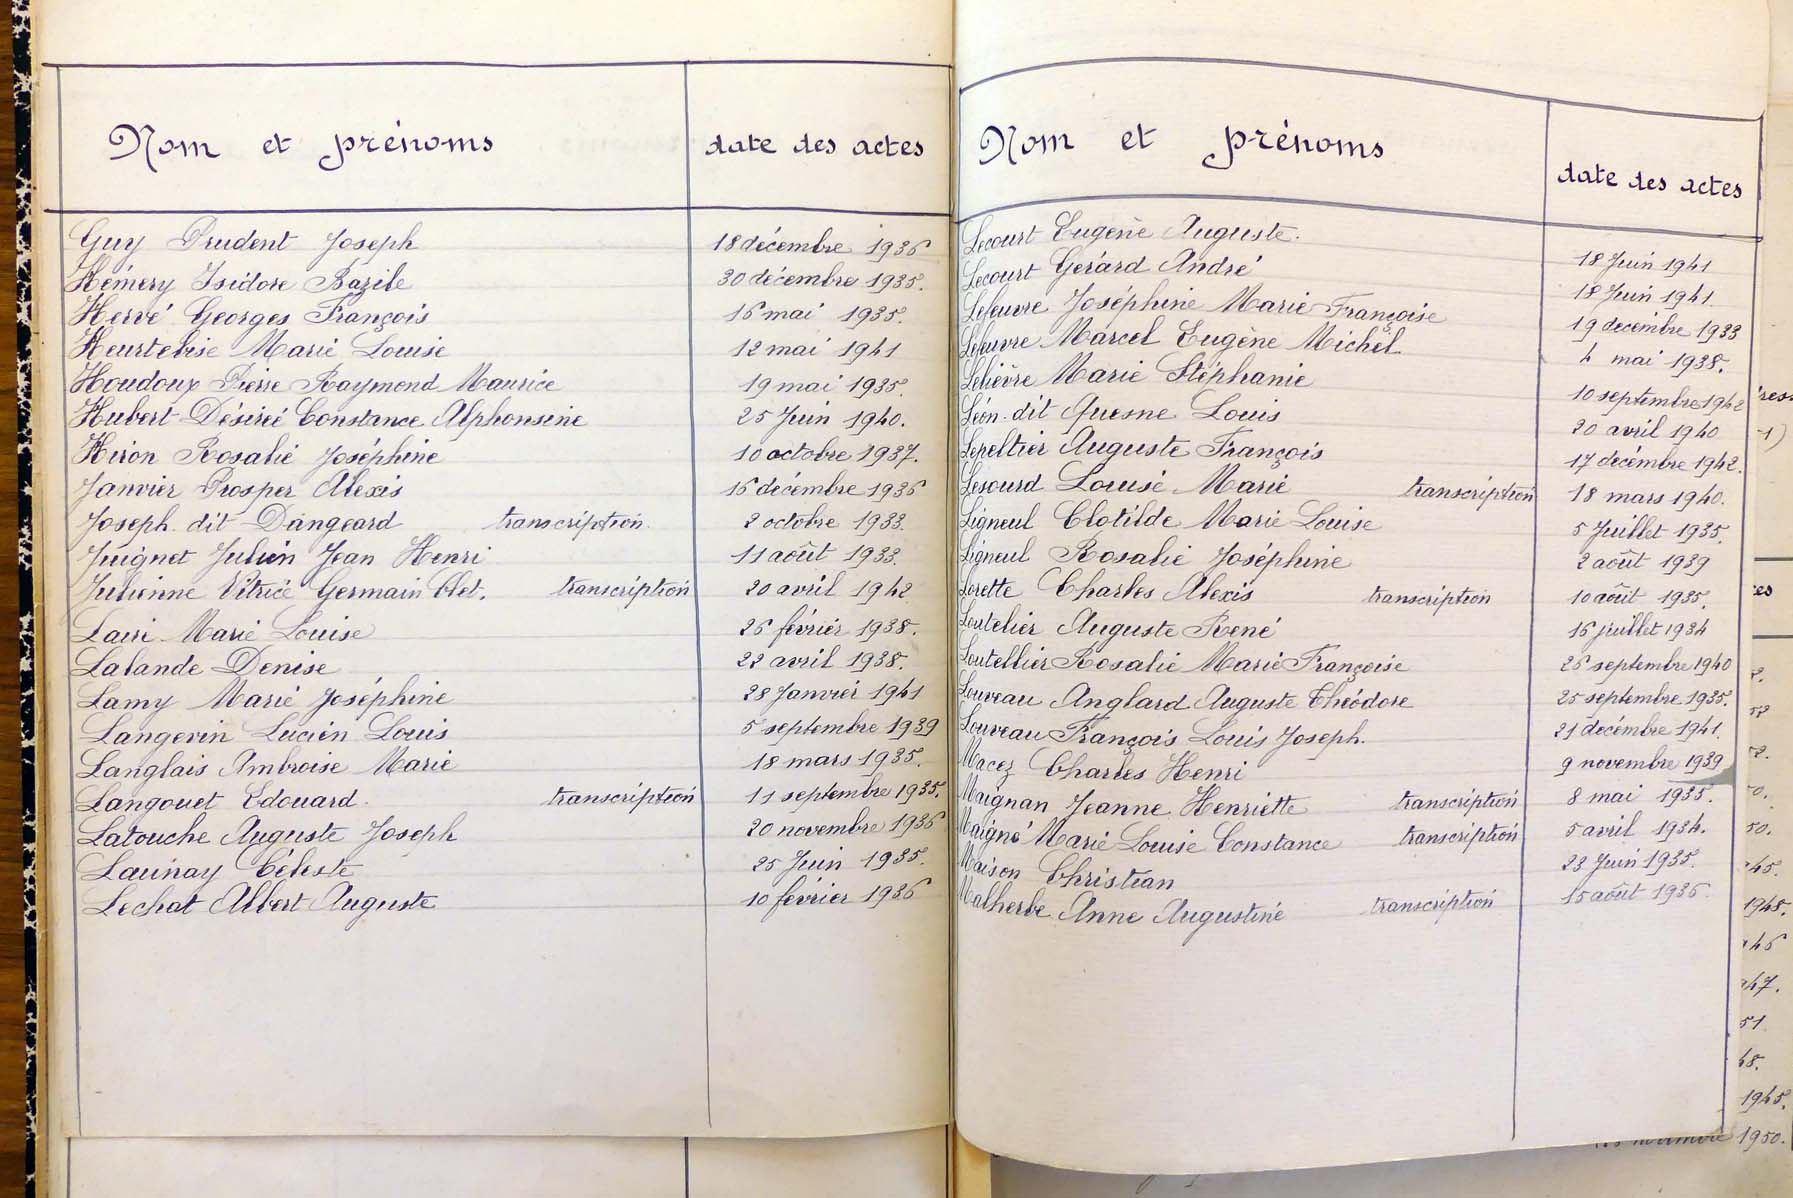 Nom et prénoms date des actes
Guy Prudent Joseph 18 décembre 1936
Hémery Isidore Bazile 30 décembre 1935.
Hervé Georges François 16 mai 1935.
Heurtebise Marie Louise 12 mai 1941
Houdoux Pierre Raymond Maurice 19 mai 1935.
Hubert Désirée Constance Alphonsine 25 Juin 1940.
Hiron Rosalie Joséphine 10 octobre 1937.
Janvier Prosper Alexis 16 décembre 1936
Joseph dit Dangeard transcription. 2 octobre 1933.
Juignet Julien Jean Henri 11 août 1933.
Julienne Vitrice Germain Clet. transcription 20 avril 1942
Lairi Marie Louise 26 février 1938.
Lalande Denise 22 avril 1938.
Lamy Marie Joséphine 28 Janvier 1941
Langevin Lucien Louis 5 septembre 1939
Langlais Ambroise Marie 18 mars 1935.
Langouet Edouard. transcription 11 septembre 1935.
Latouche Auguste Joseph 20 novembre 1936
Launay Céleste 25 Juin 1935.
Lechat Albert Auguste 10 février 1936
Nom et prénoms date des actes
Lecourt Eugène Auguste. 18 Juin 1941
Lecourt Gérard André 18 Juin 1941
Lefeuvre Joséphine Marie Françoise 19 décembre 1933
Lefeuvre Marcel Eugène Michel 4 mai 1938.
Lelièvre Marie Stéphanie 10 septembre 1942
Léon dit Quesne Louis 20 avril 1940
Lepeltier Auguste François 17 décembre 1942.
Lesourd Louise Marie transcription 18 mars 1940.
Ligneul Clotilde Marie Louise 5 Juillet 1935.
Ligneul Rosalie Joséphine 2 août 1939
Lorette Charles Alexis transcription 10 août 1935.
Loutelier Auguste René 16 juillet 1934
Loutellier Rosalie Marie Françoise 26 septembre 1940
Louveau Anglard Auguste Théodore 25 septembre 1935.
Louveau François Louis Joseph. 21 décembre 1941.
Macez Charles Henri 9 novembre 1939
Maignan Jeanne Henriette transcription 8 mai 1935.
Maigné Marie Louise Constance transcription 5 avril 1934.
Maison Christian 23 Juin 1935.
Malherbe Anne Augustine transcription 15 août 1936.
1945.
1950.